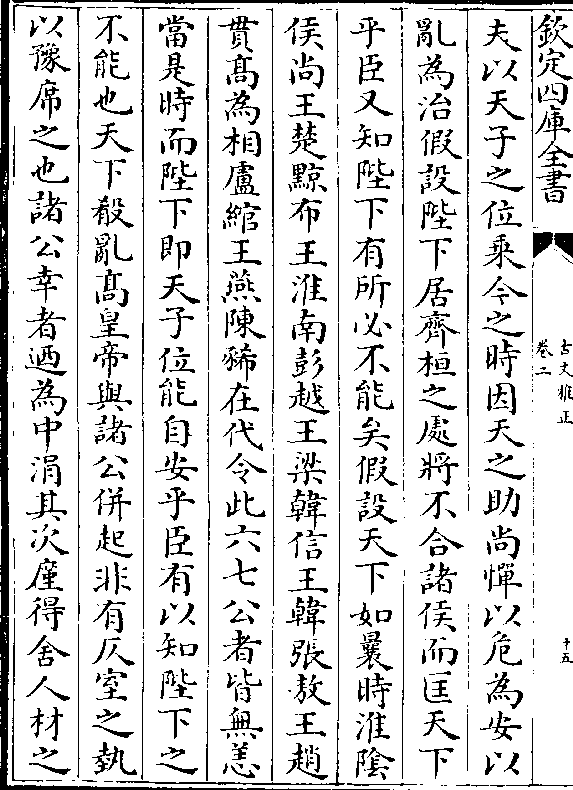 欽定四庫全書
古文雅正
卷二
十五
夫以天子之位乘今之時因天之助尚憚以危為安以
亂為治假設陛下居齊桓之處將不合諸侯而匡天下
乎臣又知陛下有所必不能矣假設天下如曩時淮隂
侯尚王楚黥布王淮南彭越王梁韓信王韓張敖王趙
貫髙為相盧綰王燕陳豨在代令此六七公者皆無恙
當是時而陛下即天子位能自安乎臣有以知陛下之
不能也天下殽亂髙皇帝與諸公併起非有仄室之執
以豫席之也諸公幸者迺為中涓其次廑得舍人材之